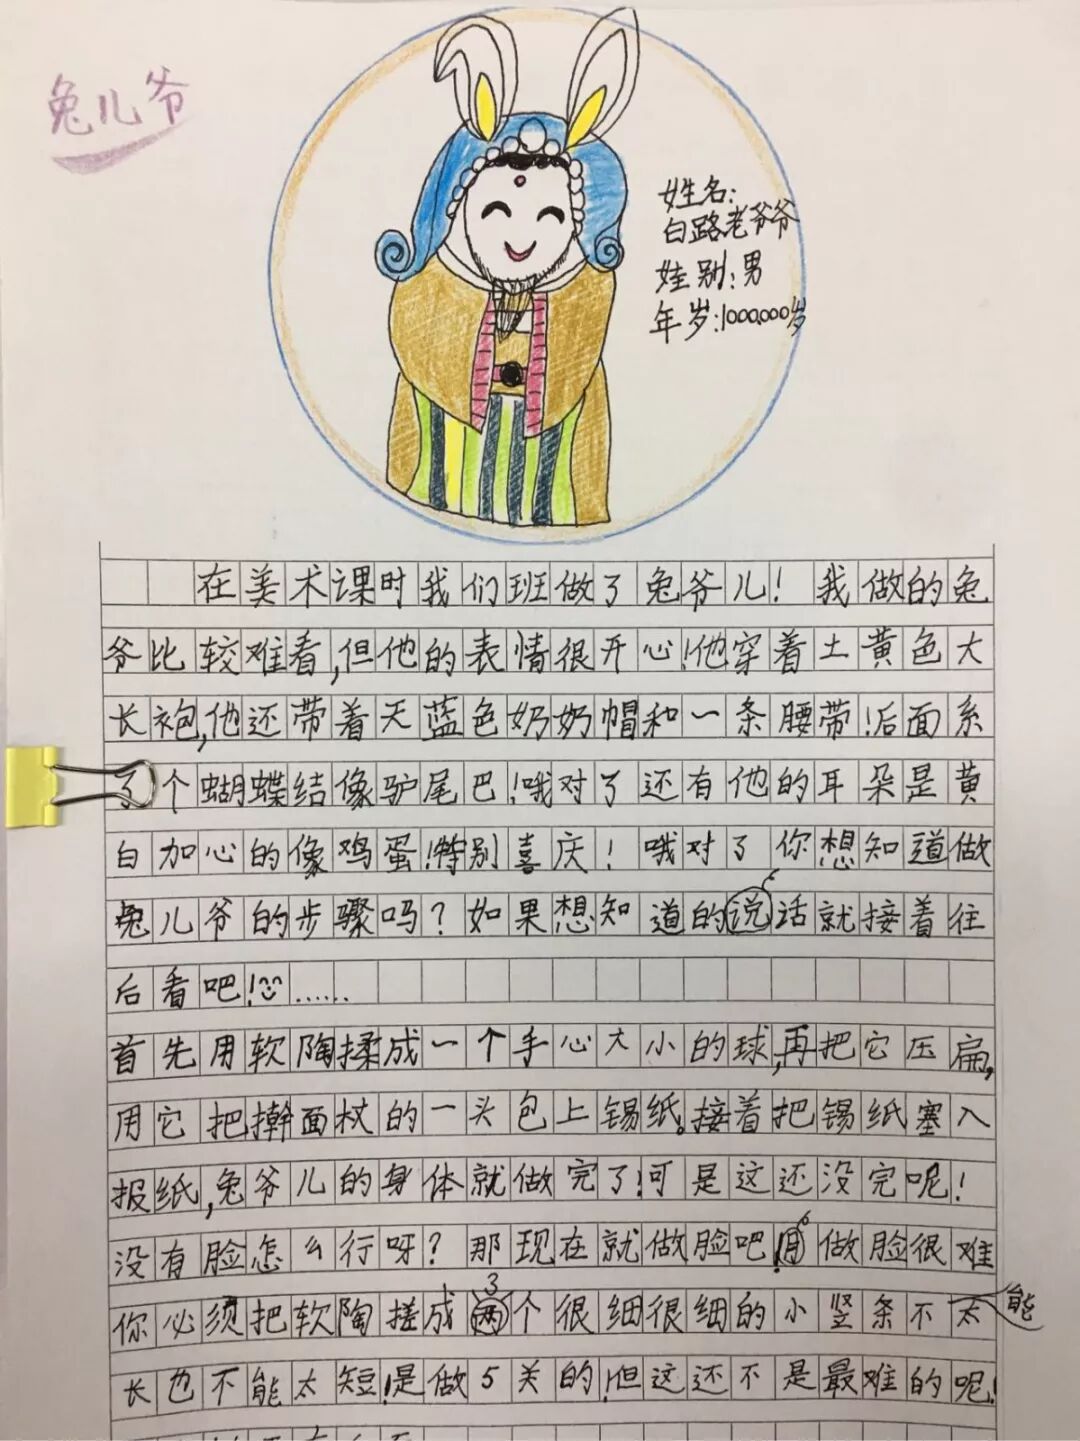 兔儿爷
姓名:
白路老爷爷
姓别:男
年岁:1000,000岁
在美术课时我们班做了兔爷儿!我做的兔
爷比较难看,但他的表情很开心!他穿着土黄色大
长袍,他还带着天蓝色奶奶帽和一条腰带!后面系
了个蝴蝶结像驴尾巴!哦对了还有他的耳朵是黄
白加心的像鸡蛋!特别喜庆!哦对了你想知道做
兔儿爷的步骤吗?如果想知道的话就接着往
后看吧!......
首先用软陶揉成一个手心大小的球,再把它压扁,
用它把擀面杖的一头包上锡纸。接着把锡纸塞入
报纸,兔爷儿的身体就做完了!可是这还没完呢!
没有脸怎么行呀?那现在就做脸吧!做脸很难
你必须把软陶搓成3个很细很细的小竖条不能太
长也不能太短!是做5关的!但这还不是最难的呢!